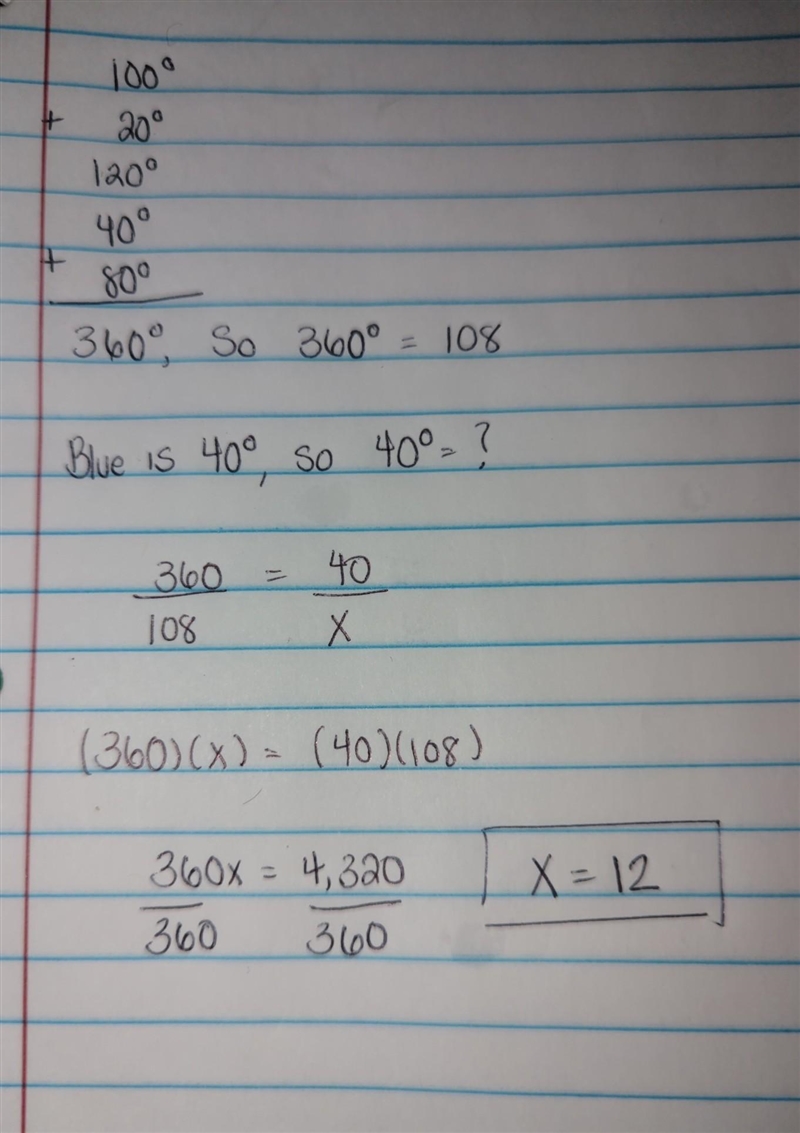 100°
+ 20°
120°
40°
+ 80°
360°, So 360° = 108
Blue is 40°, so 40° = ?
360 = 40
108 X
(360)(x) = (40)(108)
360x = 4,320 X = 12
360 360